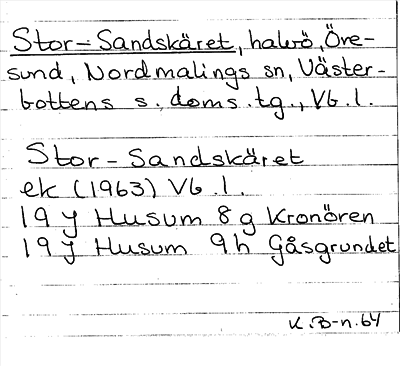 Stor-Sandskäret, halvö, Öre-
sund, Nordmalings sn, Väster-
bottens s. doms. tg., Vb. l.
Stor-Sandskäret
ek (1963) Vb. l.
19 J Husum 8 g Kronören
19 J Husum 9 h Gåsgrundet
K.B-n. 64